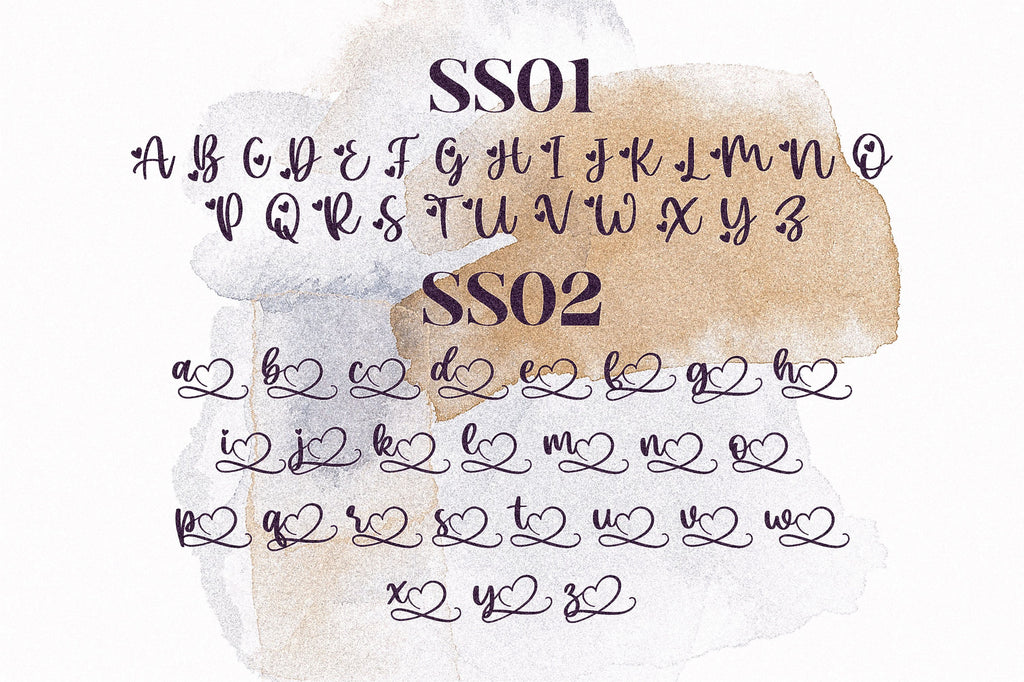 SS01
A B C D E F G H I J K L M N O
P Q R S T U V W X Y Z
SS02
a b c d e f g h
i j k l m n o
p q r s t u v w
x y z